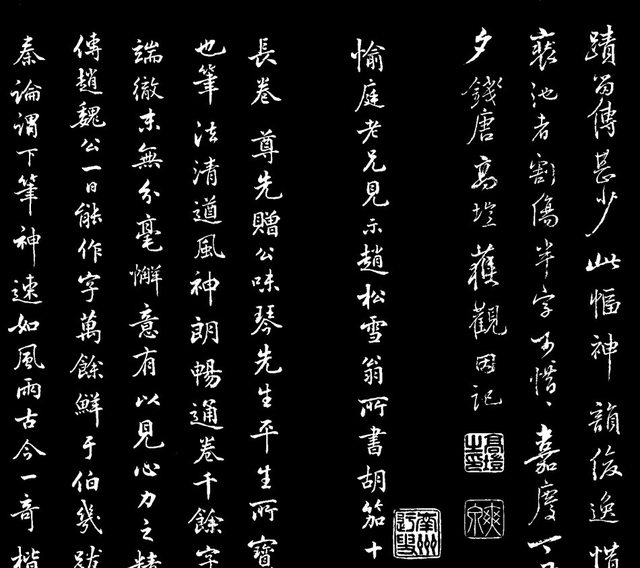 蹟留傳甚少此幅神韻俊逸惜
裝池者割傷半字可惜〻嘉慶
夕錢唐高塏獲觀因記
愉庭老兄見示趙松雪翁所書胡笳十
長卷尊先贈公味琴先生平生所寶
也筆法清遒風神朗暢通卷千餘字
端徹末無分毫懈意有以見心力之精
傳趙魏公一日能作字萬餘鮮于伯幾跋
秦論謂下筆神速如風雨古今一奇楷
高塏之印